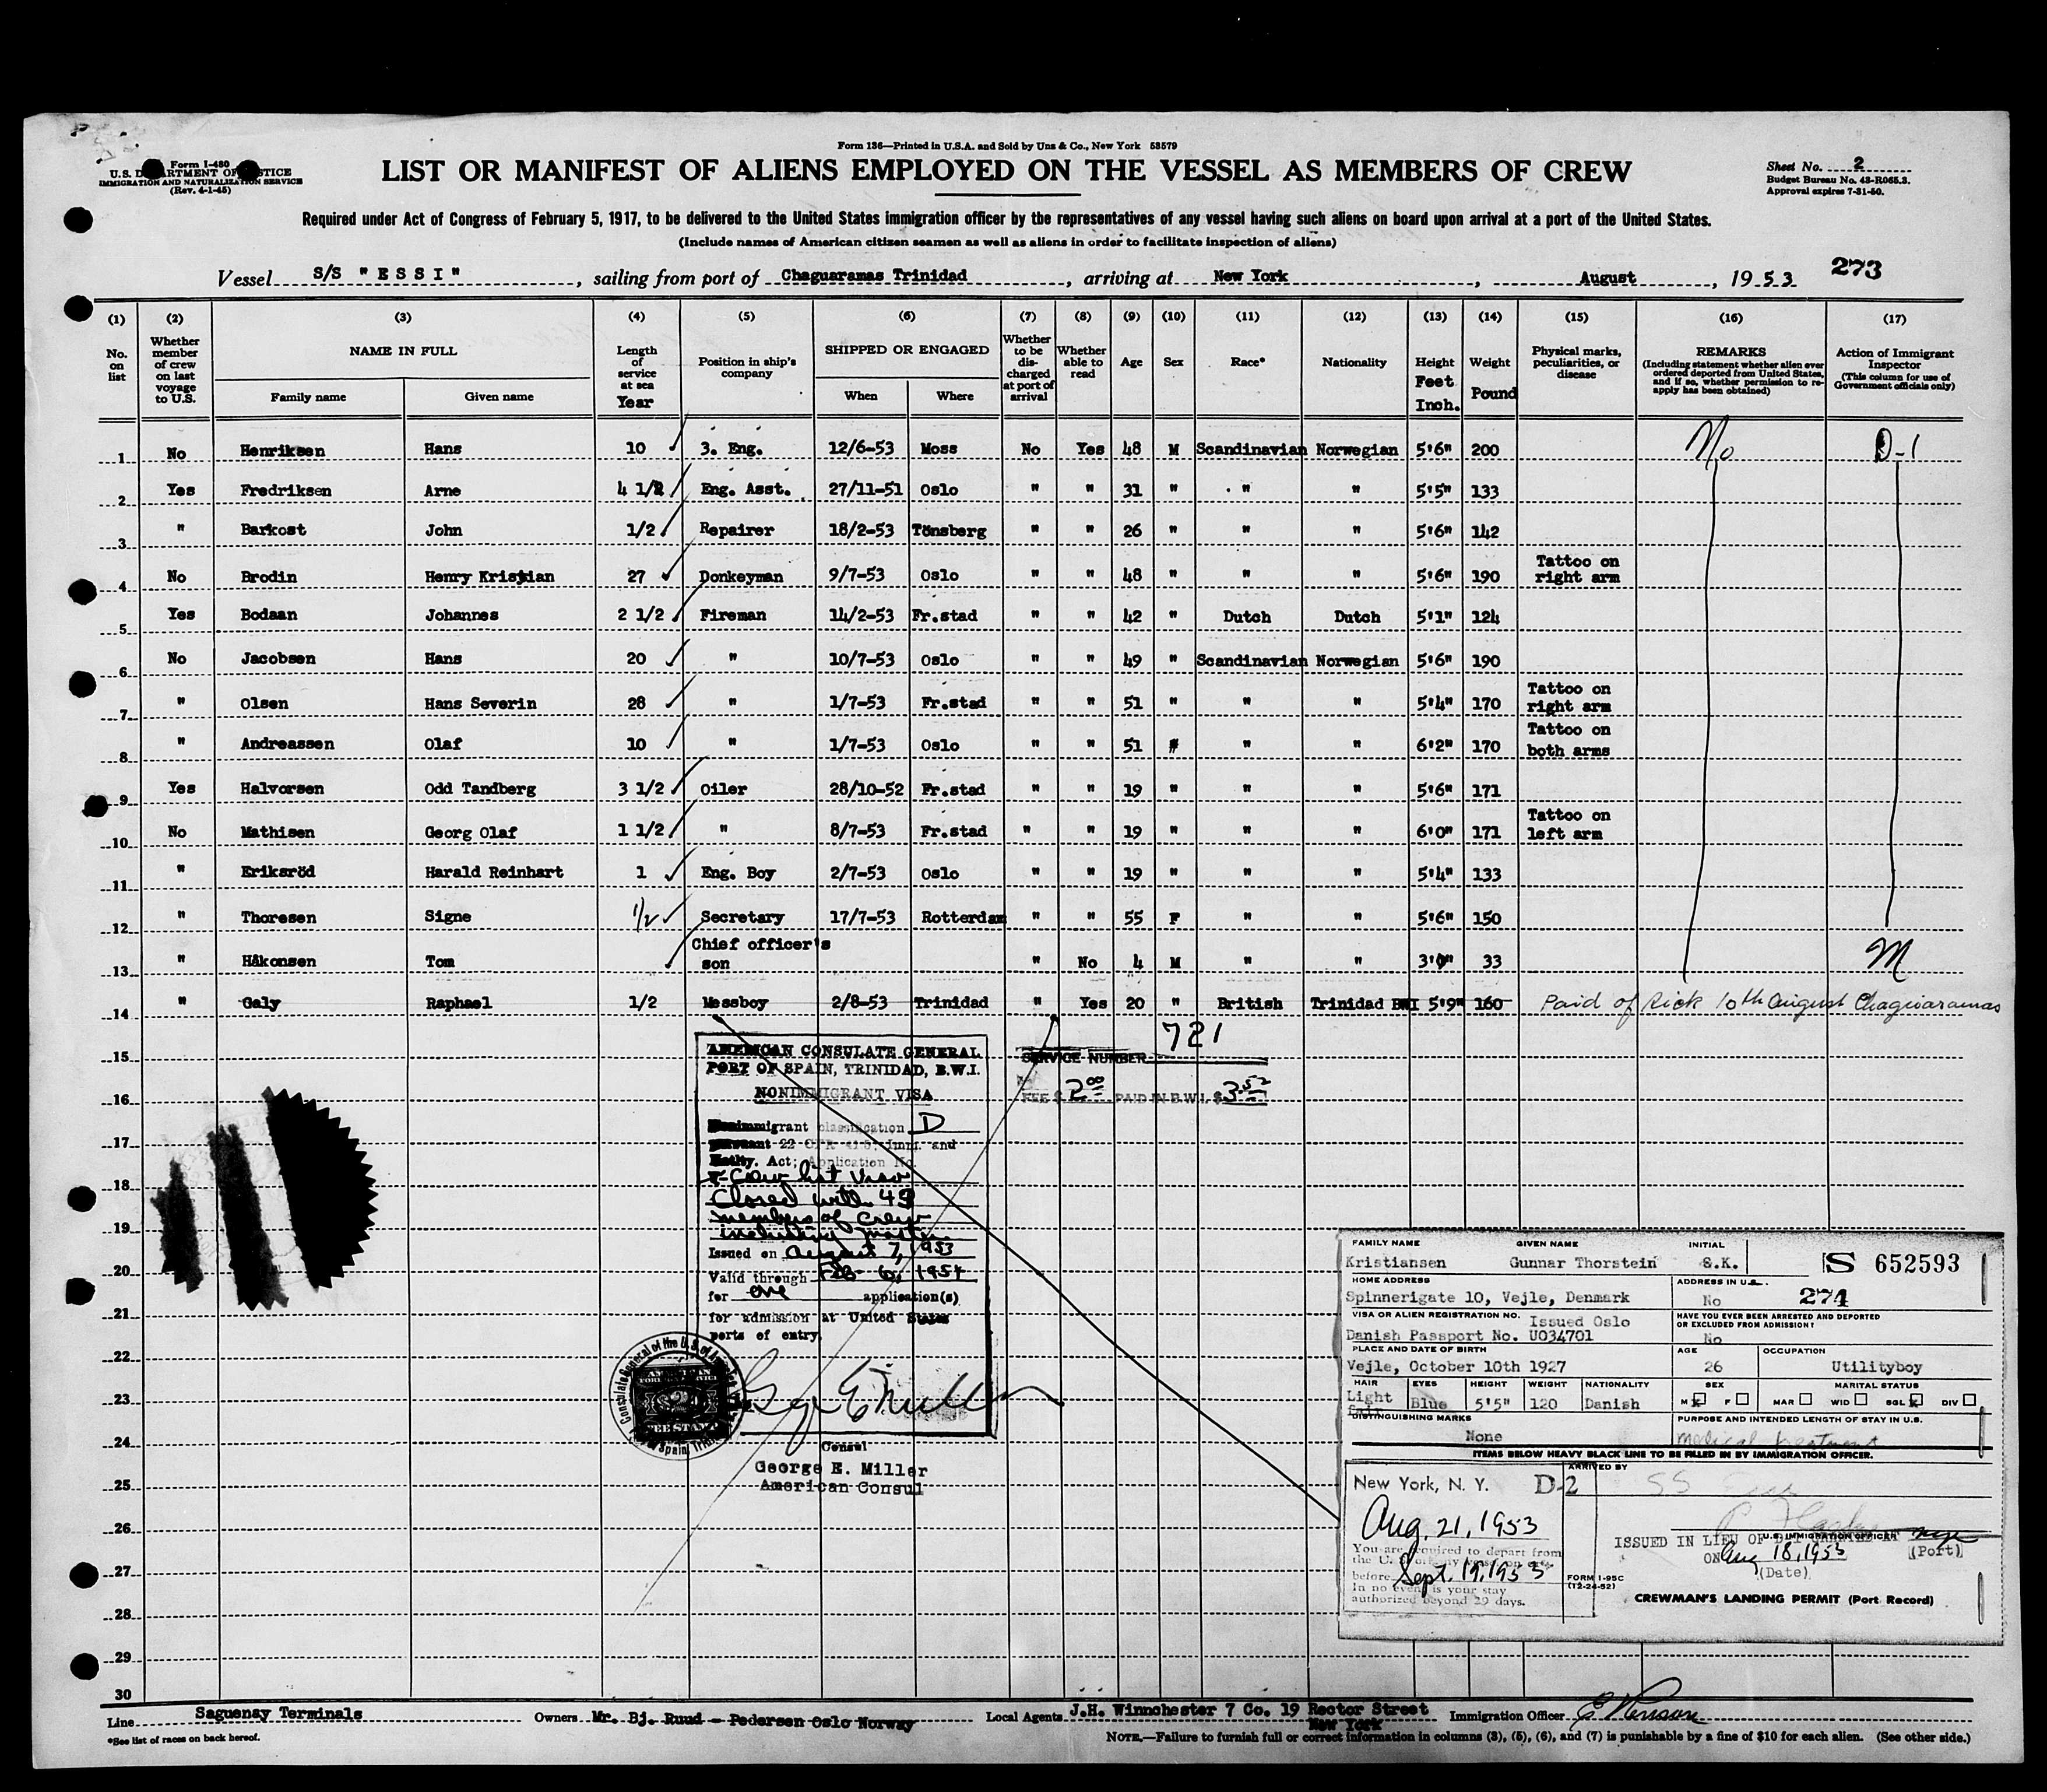 Form 136—Printed in U.S.A. and Sold by Unz & Co., New York 53579
Form I-480
U.S. DEPARTMENT OF JUSTICE
IMMIGRATION AND NATURALIZATION SERVICE
(Rev. 4-1-45)
LIST OR MANIFEST OF ALIENS EMPLOYED ON THE VESSEL AS MEMBERS OF CREW
Sheet No. 2
Budget Bureau No. 43-R065.3.
Approval expires 7-31-50.
Required under Act of Congress of February 5, 1917, to be delivered to the United States immigration officer by the representatives of any vessel having such aliens on board upon arrival at a port of the United States.
(Include names of American citizen seamen as well as aliens in order to facilitate inspection of aliens)
Vessel S/S "ESSI", sailing from port of Chaguaramas Trinidad, arriving at New York, August, 1953 273
(1) (2) (3) (4) (5) (6) (7) (8) (9) (10) (11) (12) (13) (14) (15) (16) (17)
No. on list
Whether member of crew on last voyage to U.S.
NAME IN FULL
Family name Given name
Length of service at sea Year
Position in ship's company
SHIPPED OR ENGAGED
When Where
Whether to be discharged at port of arrival
Whether able to read
Age
Sex
Race*
Nationality
Height Feet Inch.
Weight Pound
Physical marks, peculiarities, or disease
REMARKS
(Including statement whether alien ever ordered deported from United States, and if so, whether permission to reapply has been obtained)
Action of Immigrant Inspector
(This column for use of Government officials only)
1 No Henriksen Hans 10 3. Eng. 12/6-53 Moss No Yes 48 M Scandinavian Norwegian 5'6" 200 No D-1
2 Yes Fredriksen Arne 4 1/2 Eng. Asst. 27/11-51 Oslo " " 31 " " " 5'5" 133
3 " Barkost John 1/2 Repairer 18/2-53 Tönsberg " " 26 " " " 5'6" 142
4 No Brodin Henry Kristian 27 Donkeyman 9/7-53 Oslo " " 48 " " " 5'6" 190 Tattoo on right arm
5 Yes Bodaan Johannes 2 1/2 Fireman 14/2-53 Fr.stad " " 42 " Dutch Dutch 5'1" 124
6 No Jacobsen Hans 20 " 10/7-53 Oslo " " 49 " Scandinavian Norwegian 5'6" 190
7 " Olsen Hans Severin 28 " 1/7-53 Fr.stad " " 51 " " " 5'4" 170 Tattoo on right arm
8 " Andreassen Olaf 10 " 1/7-53 Oslo " " 51 " " " 6'2" 170 Tattoo on both arms
9 Yes Halvorsen Odd Tandberg 3 1/2 Oiler 28/10-52 Fr.stad " " 19 " " " 5'6" 171
10 No Mathisen Georg Olaf 1 1/2 " 8/7-53 Fr.stad " " 19 " " " 6'0" 171 Tattoo on left arm
11 " Eriksröd Harald Reinhart 1 Eng. Boy 2/7-53 Oslo " " 19 " " " 5'4" 133
12 " Thoresen Signe 1/2 Secretary 17/7-53 Rotterdam " " 55 F " " 5'6" 150
13 " Håkonsen Tom Chief officer's son " No 4 M " " 3'0" 33 M
14 " Galy Raphael 1/2 Messboy 2/8-53 Trinidad " Yes 20 " British Trinidad BWI 5'9" 160 Paid of Sick 10th August Chaguaramas
15
16
17
18
19
20
21
22
23
24
25
26
27
28
29
30
AMERICAN CONSULATE GENERAL
PORT OF SPAIN, TRINIDAD, B.W.I.
NONIMMIGRANT VISA
Nonimmigrant classification D
pursuant 22 CFR 41.6; Immi. and
Natlty. Act; Application No.
Crew list Visa
Closed with 43
members of Crew
including master
Issued on August 7, 1953
Valid through Feb 6, 1954
for one application(s)
for admission at United States
ports of entry.
Consul
George E. Miller
American Consul
SERVICE NUMBER 721
FEE $ 2.00 PAID IN B.W.I. $ 3.52
FAMILY NAME GIVEN NAME INITIAL
Kristiansen Gunnar Thorstein G.K. S 652593
HOME ADDRESS ADDRESS IN U.S.
Spinnerigate 10, Vejle, Denmark No 274
VISA OR ALIEN REGISTRATION NO. Issued Oslo
Danish Passport No. U034701
HAVE YOU EVER BEEN ARRESTED AND DEPORTED OR EXCLUDED FROM ADMISSION?
No
PLACE AND DATE OF BIRTH AGE OCCUPATION
Vejle, October 10th 1927 26 Utilityboy
HAIR EYES HEIGHT WEIGHT NATIONALITY SEX MARITAL STATUS
Light fair Blue 5'5" 120 Danish M F MAR WID SGL DIV
DISTINGUISHING MARKS PURPOSE AND INTENDED LENGTH OF STAY IN U.S.
None Medical treatment
ITEMS BELOW HEAVY BLACK LINE TO BE FILLED IN BY IMMIGRATION OFFICER.
New York, N. Y. D-2
ARRIVED BY
SS Essi
Aug. 21, 1953
You are required to depart from
the U. S.
before Sept. 19, 1953
In no event is your stay
authorized beyond 29 days.
U.S. IMMIGRATION OFFICER
ISSUED IN LIEU OF
ON Aug 18, 1953
(Port)
(Date)
FORM I-95C
(12-24-52)
CREWMAN'S LANDING PERMIT (Port Record)
Line Saguenay Terminals Owners Mr. Bj. Ruud - Pedersen Oslo Norway Local Agents J.H. Winnchester 7 Co. 19 Rector Street New York Immigration Officer
*See list of races on back hereof.
NOTE.—Failure to furnish full or correct information in columns (3), (5), (6), and (7) is punishable by a fine of $10 for each alien. (See other side.)